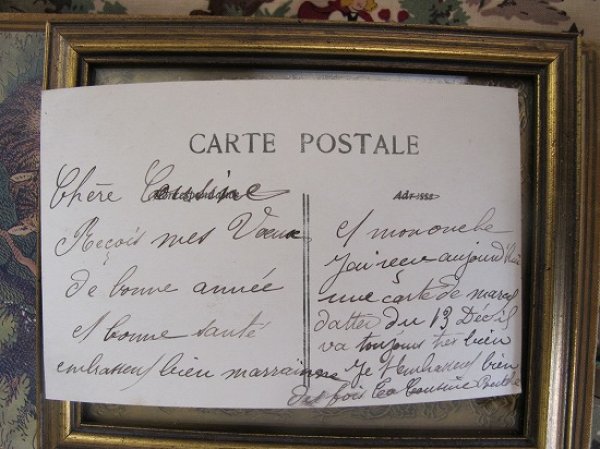 CARTE POSTALE
Chère Cousine
Reçois mes Voeux
de bonne année
et bonne santé
embrasses bien marrainne
Adresse
et mon oncle
J'ai reçu aujourd'hui
une carte de marcel
datter du 13 Dec il
va toujours tres bien
Je t'embrasses bien
des fois ta Cousine